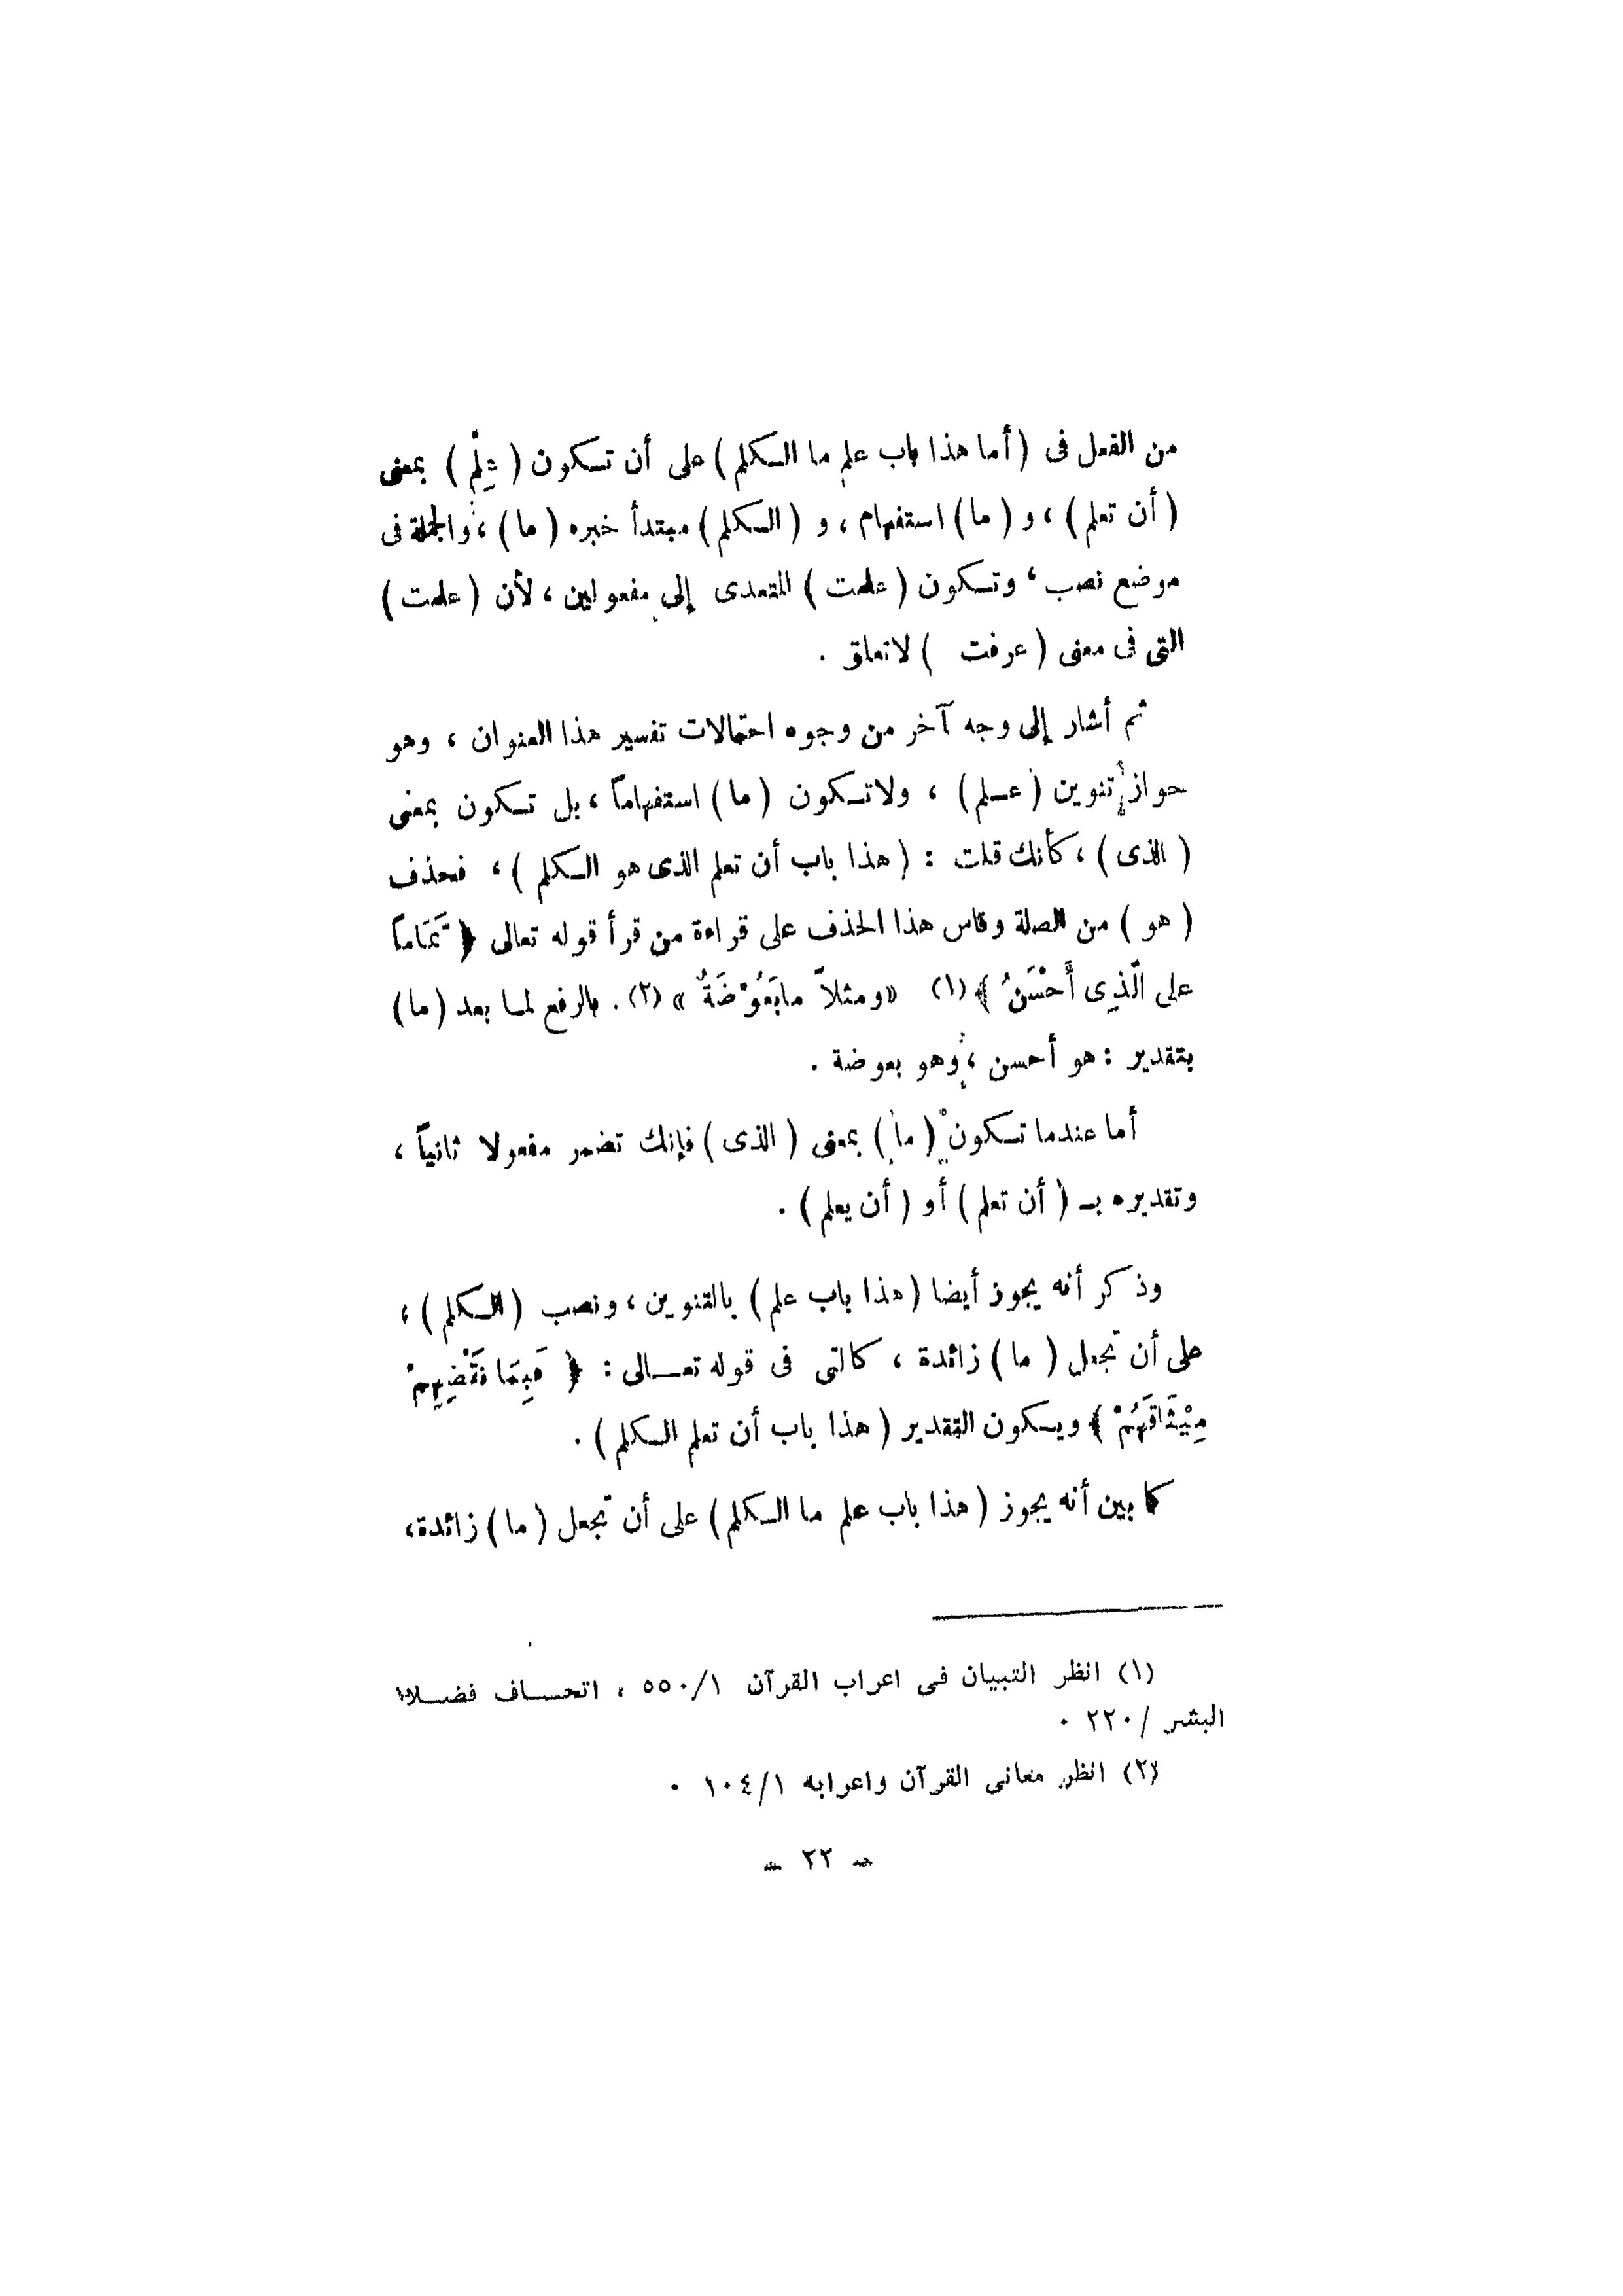 من الفعل فى ( أما هذا باب علم ما الكلم ) على أن تكون ( عِلْم ) بمعنى
( أن تعلم ) ، و ( ما ) استفهام ، و ( الكلم ) مبتدأ خبره ( ما ) ، والجملة فى
موضع نصب ، وتكون ( علمت ) المتعدى إلى مفعولين ، لأن ( علمت )
التى فى معنى ( عرفت ) لاتعلق .
ثم أشار إلى وجه آخر من وجوه احتمالات تفسير هذا العنوان ، وهو
جواز تنوين ( عـلم ) ، ولاتكون ( ما ) استفهاماً ، بل تكون بمعنى
( الذى ) ، كأنك قلت : ( هذا باب أن تعلم الذى هو الكلم ) ، فحذف
( هو ) من الصلة وقاس هذا الحذف على قراءة من قرأ قوله تعالى ﴿ تَمَاماً
على الَّذِى أَحْسَنُ ﴾ (١) «ومثلاً مابَعُوْضَةٌ » (٢) . بالرفع لما بعد ( ما )
بتقدير : هو أحسن ، وهو بعوضة .
أما عندما تكون ( ما ) بمعنى ( الذى ) فإنك تضمر مفعولا ثانياً ،
وتقديره بـ ( أن تعلم ) أو ( أن يعلم ) .
وذكر أنه يجوز أيضا ( هذا باب علم ) بالتنوين ، ونصب ( الكلم ) ،
على أن تجعل ( ما ) زائدة ، كالتى فى قوله تعـالى : ﴿ فَبِمَا نَقْضِهِمْ
مِيْثَاقَهُمْ ﴾ ويكون التقدير ( هذا باب أن تعلم الكلم ) .
كما بين أنه يجوز ( هذا باب علم ما الكلم ) على أن تجعل ( ما ) زائدة ،
(١) انظر التبيان فى اعراب القرآن ٥٥٠/١ ، اتحـاف فضـلاء
البشر /٢٢٠ .
(٢) انظر معانى القرآن واعرابه ١٠٤/١ .
ـ ٢٢ ـ